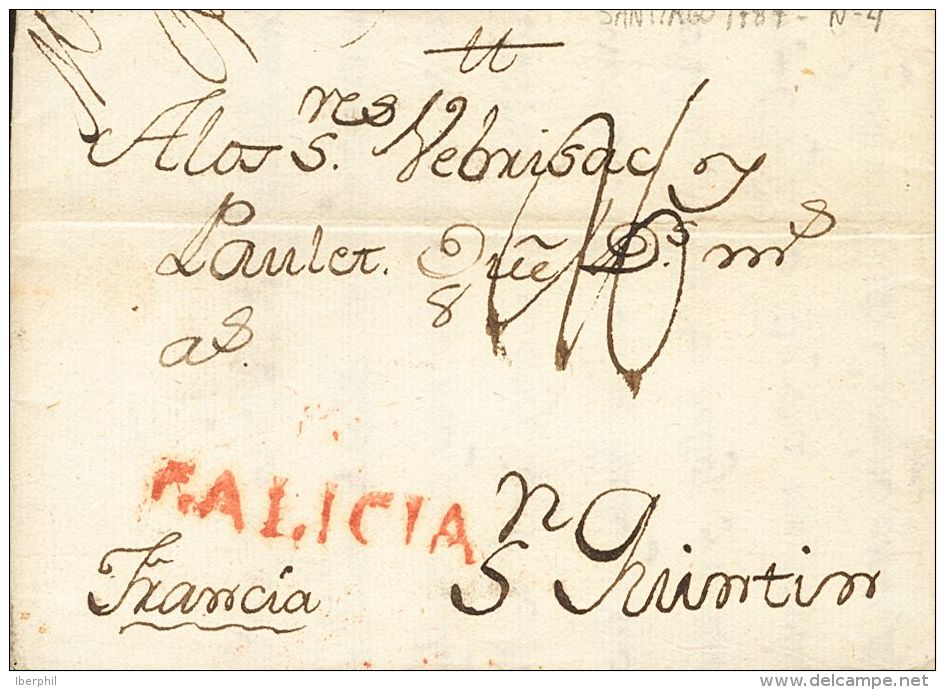 SANTIAGO 1787 - N-4
A los S.res Vebrisac y
Paulet. Que Ds. ms
as.
GALICIA
Francia
Sn Quintin
Iberphil
www.delcampe.net